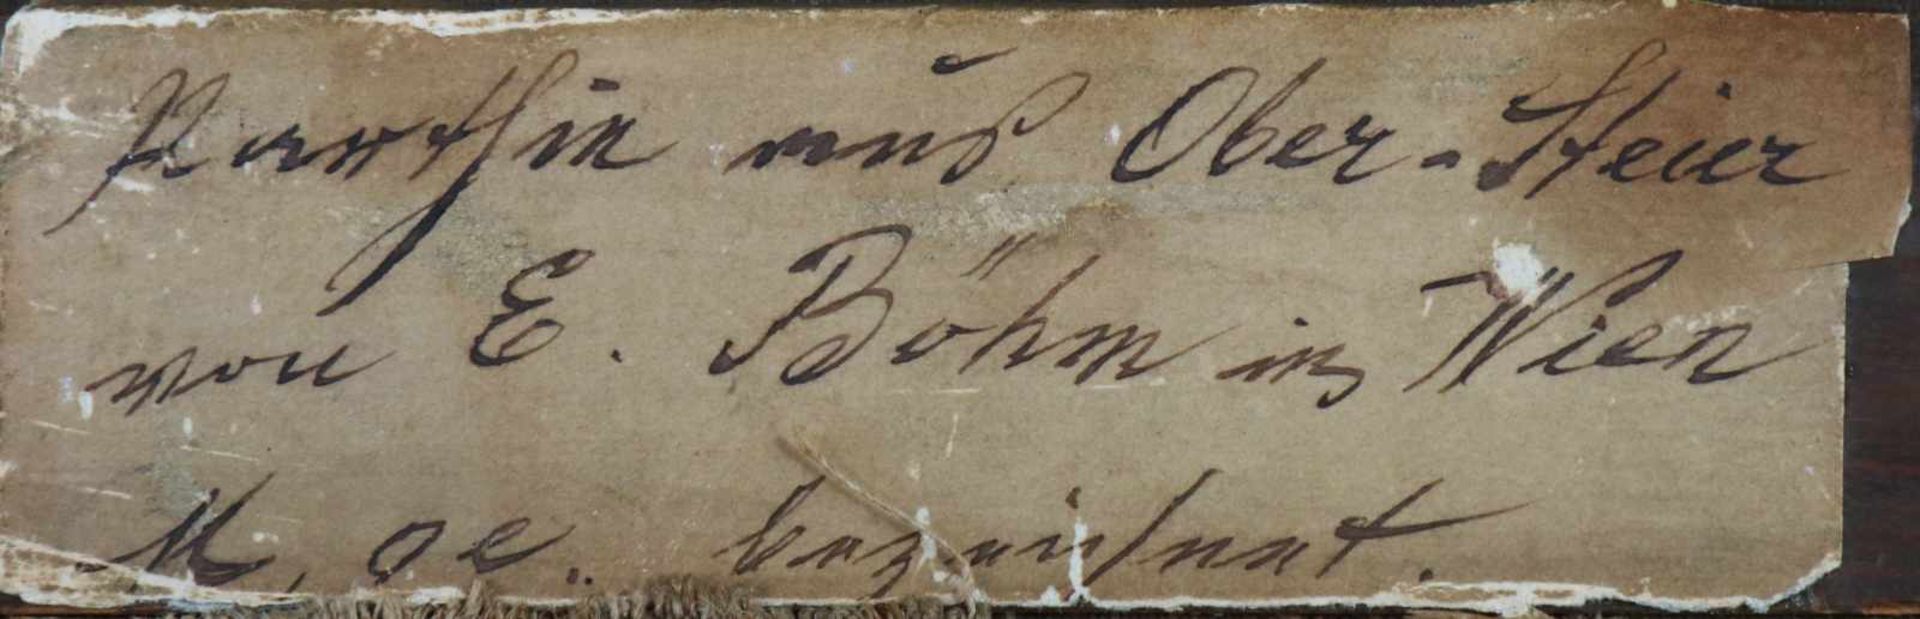 Parthie aus Ober-Steier
von E. Böhm in Wien
M. oe. bezeichnet.